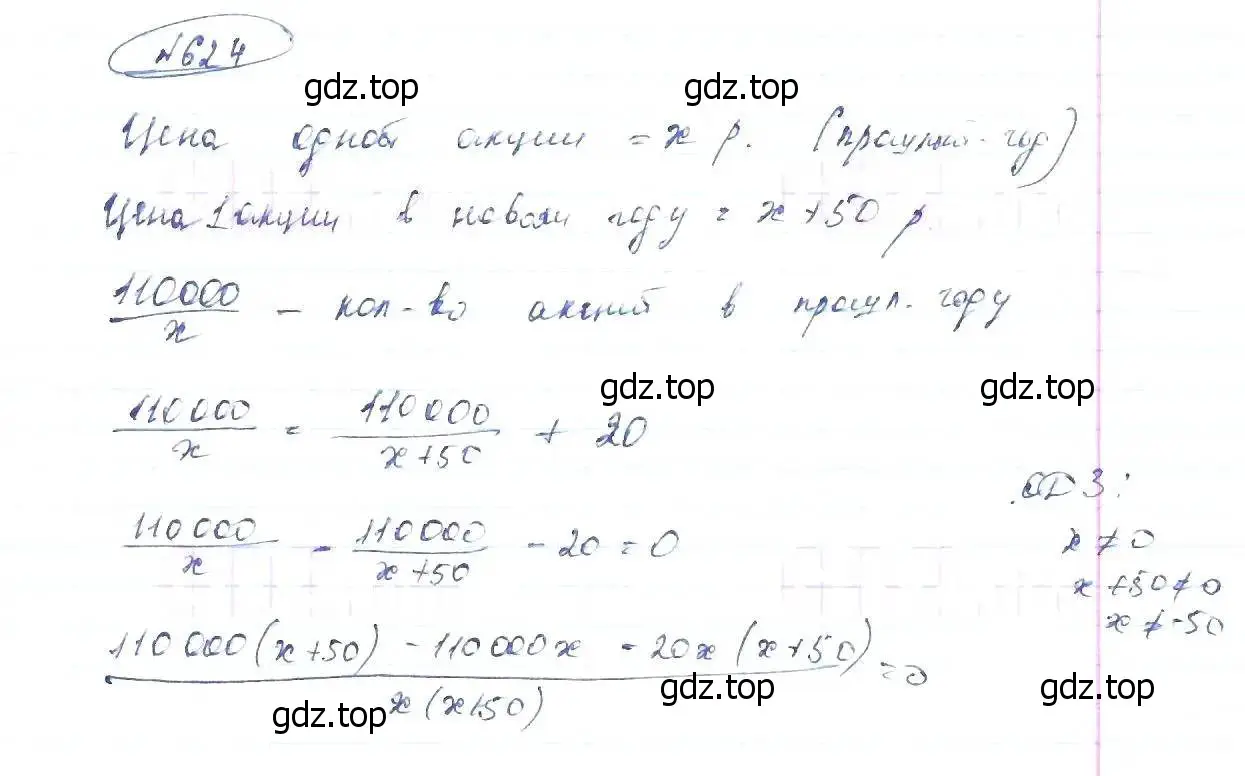 №624
gdz.top gdz.top
Цена одной акции = x р. (прошлый год)
Цена 1 акции в новом году = x+50 р.
110000/x – кол-во акций в прошл. году
gdz.top gdz.top
110000/x = 110000/(x+50) + 20
ОДЗ:
110000/x - 110000/(x+50) - 20 = 0
x ≠ 0
x+50≠0
x ≠ -50
(110000(x+50) - 110000x - 20x(x+50))/(x(x+50)) = 0
gdz.top gdz.top gdz.top